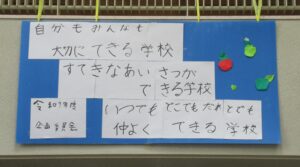 自分もみんなも
大切にできる学校
すてきなあいさつが
できる学校
いつでもどこでもだれとでも
仲よくできる学校
令和7年度
企画委員会